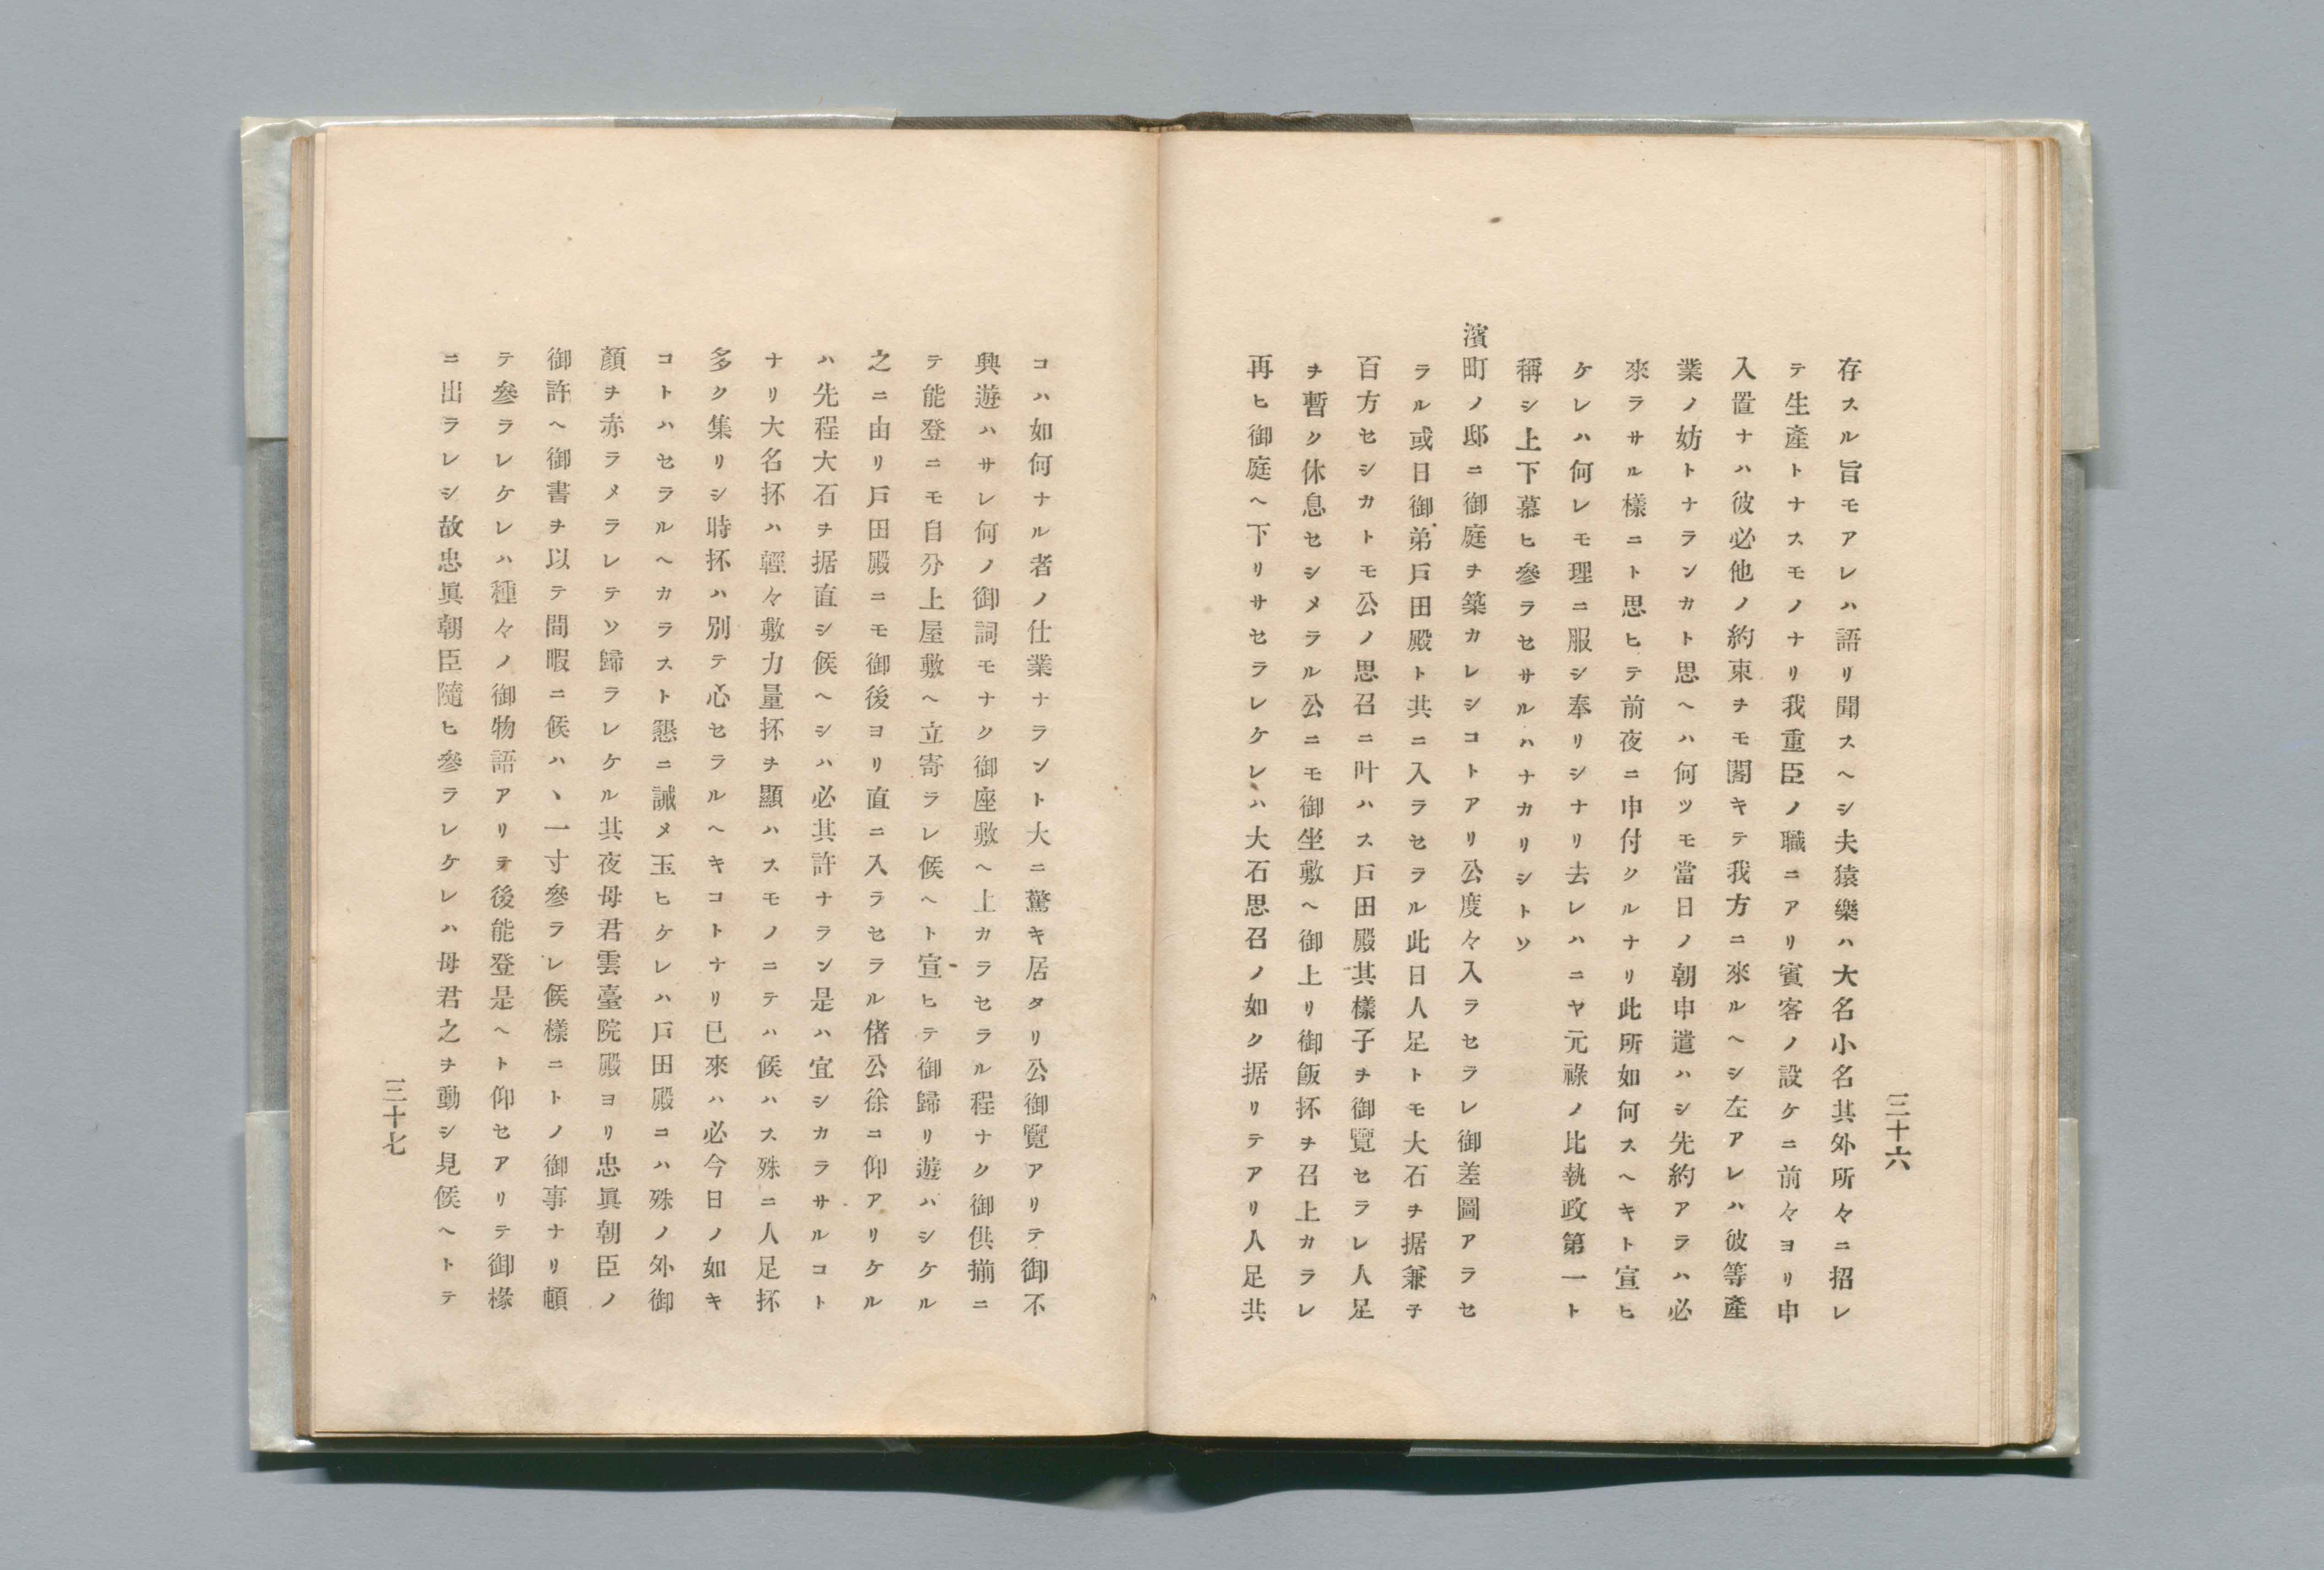 三十六
存スル旨モアレハ語リ聞スヘシ夫猿樂ハ大名小名其外所々ニ招レ
テ生產トナスモノナリ我重臣ノ職ニアリ賓客ノ設ケニ前々ヨリ申
入置ナハ彼必他ノ約束ヲモ閣キテ我方ニ來ルヘシ左アレハ彼等產
業ノ妨トナランカト思ヘハ何ツモ當日ノ朝申遣ハシ先約アラハ必
來ラサル樣ニト思ヒテ前夜ニ申付クルナリ此所如何スヘキト宣ヒ
ケレハ何レモ理ニ服シ奉リシナリ去レハニヤ元祿ノ比執政第一ト
稱シ上下慕ヒ參ラセサルハナカリシトソ
濱町ノ邸ニ御庭ヲ築カレシコトアリ公度々入ラセラレ御差圖アラセ
ラル或日御弟戶田殿ト共ニ入ラセラル此日人足トモ大石ヲ据兼子
百方セシカトモ公ノ思召ニ叶ハス戶田殿其樣子ヲ御覽セラレ人足
ヲ暫ク休息セシメラル公ニモ御坐敷ヘ御上リ御飯抔ヲ召上カラレ
再ヒ御庭ヘ下リサセラレケレハ大石思召ノ如ク据リテアリ人足共
コハ如何ナル者ノ仕業ナラント大ニ驚キ居タリ公御覽アリテ御不
興遊ハサレ何ノ御詞モナク御座敷ヘ上カラセラル程ナク御供揃ニ
テ能登ニモ自分上屋敷ヘ立寄ラレ候ヘト宣ヒテ御歸リ遊ハシケル
之ニ由リ戶田殿ニモ御後ヨリ直ニ入ラセラル偖公徐ニ仰アリケル
ハ先程大石ヲ据直シ候ヘシハ必其許ナラン是ハ宜シカラサルコト
ナリ大名抔ハ輕々敷力量抔ヲ顯ハスモノニテハ候ハス殊ニ人足抔
多ク集リシ時抔ハ別テ心セラルヘキコトナリ已來ハ必今日ノ如キ
コトハセラルヘカラスト懇ニ誡メ玉ヒケレハ戶田殿コハ殊ノ外御
顏ヲ赤ラメラレテソ歸ラレケル其夜母君雲臺院殿ヨリ忠眞朝臣ノ
御許ヘ御書ヲ以テ間暇ニ候ハヽ一寸參ラレ候樣ニトノ御事ナリ頓
テ參ラレケレハ種々ノ御物語アリテ後能登是ヘト仰セアリテ御椽
ニ出ラレシ故忠眞朝臣隨ヒ參ラレケレハ母君之ヲ動シ見候ヘトテ
三十七